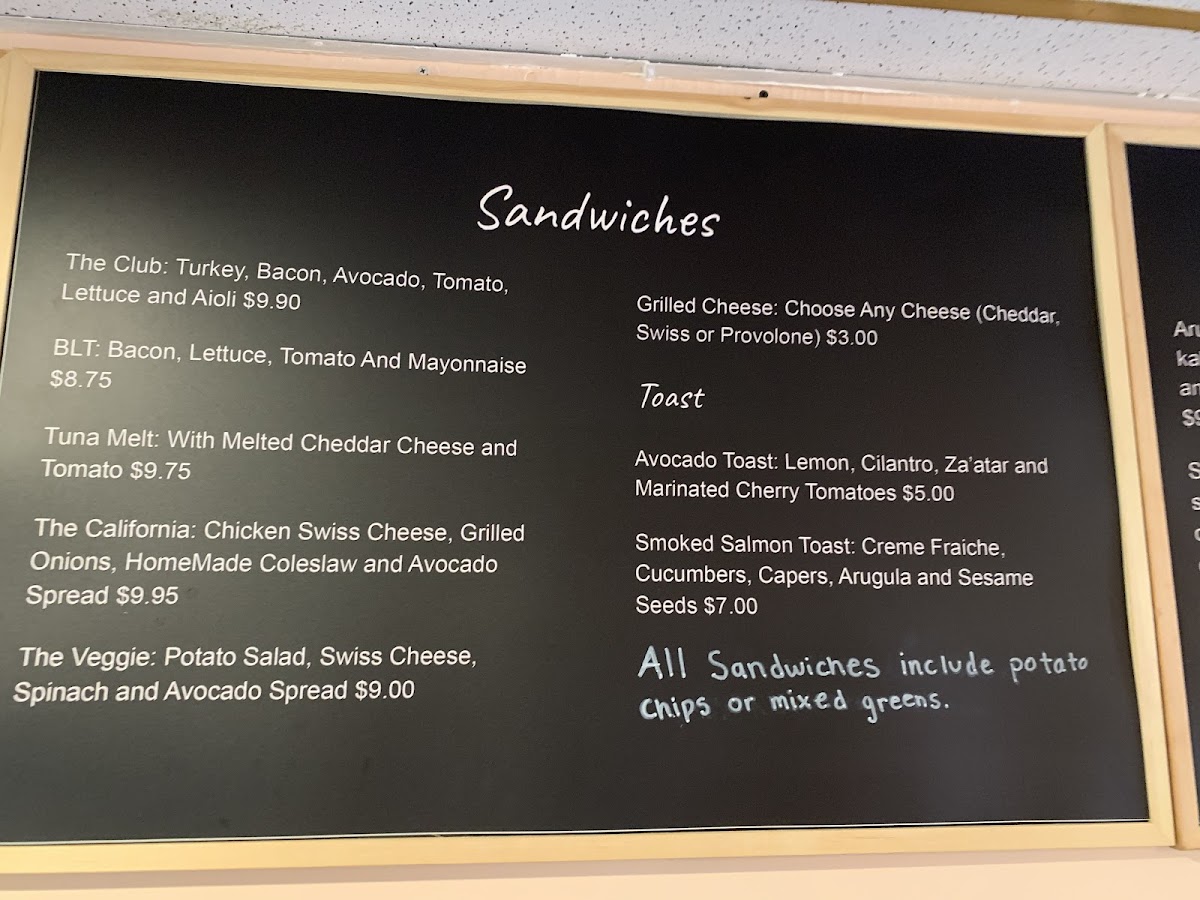 Sandwiches
The Club: Turkey, Bacon, Avocado, Tomato,
Lettuce and Aioli $9.90
BLT: Bacon, Lettuce, Tomato And Mayonnaise
$8.75
Tuna Melt: With Melted Cheddar Cheese and
Tomato $9.75
The California: Chicken Swiss Cheese, Grilled
Onions, HomeMade Coleslaw and Avocado
Spread $9.95
The Veggie: Potato Salad, Swiss Cheese,
Spinach and Avocado Spread $9.00
Grilled Cheese: Choose Any Cheese (Cheddar,
Swiss or Provolone) $3.00
Toast
Avocado Toast: Lemon, Cilantro, Za'atar and
Marinated Cherry Tomatoes $5.00
Smoked Salmon Toast: Creme Fraiche,
Cucumbers, Capers, Arugula and Sesame
Seeds $7.00
All Sandwiches include potato
chips or mixed greens.